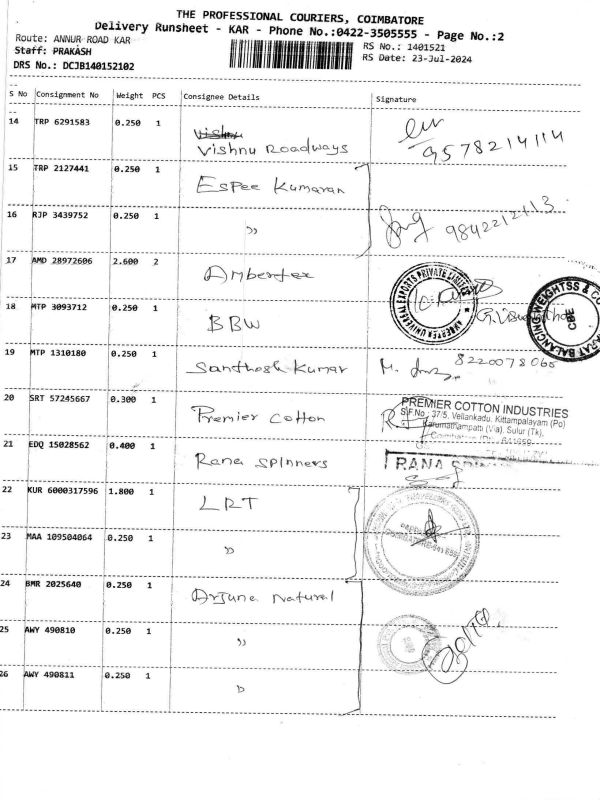 THE PROFESSIONAL COURIERS, COIMBATORE
Delivery Runsheet - KAR - Phone No.:0422-3505555 - Page No.:2
Route: ANNUR ROAD KAR
RS No.: 1401521
Staff: PRAKASH
RS Date: 23-Jul-2024
DRS No.: DCJB140152102
S No Consignment No Weight PCS Consignee Details Signature
14 TRP 6291583 0.250 1 Vishnu Roadways
9578214114
15 TRP 2127441 0.250 1 Espee Kumaran
16 RJP 3439752 0.250 1 "
9842212113
17 AMD 28972606 2.600 2 Ambertex
18 MTP 3093712 0.250 1 BBW
19 MTP 1310180 0.250 1 Santhosh Kumar 8220078066
20 SRT 57245667 0.300 1 Premier Cotton
PREMIER COTTON INDUSTRIES
S.F.No : 37/5, Vellankadu, Kittampalayam (Po)
Karumathampatti (Via), Sulur (Tk),
21 EDQ 15028562 0.400 1 Rana Spinners
RANA
22 KUR 6000317596 1.800 1 LRT
23 MAA 109504064 0.250 1 "
24 BMR 2025640 0.250 1 Arjuna Natural
25 AWY 490810 0.250 1 "
26 AWY 490811 0.250 1 "